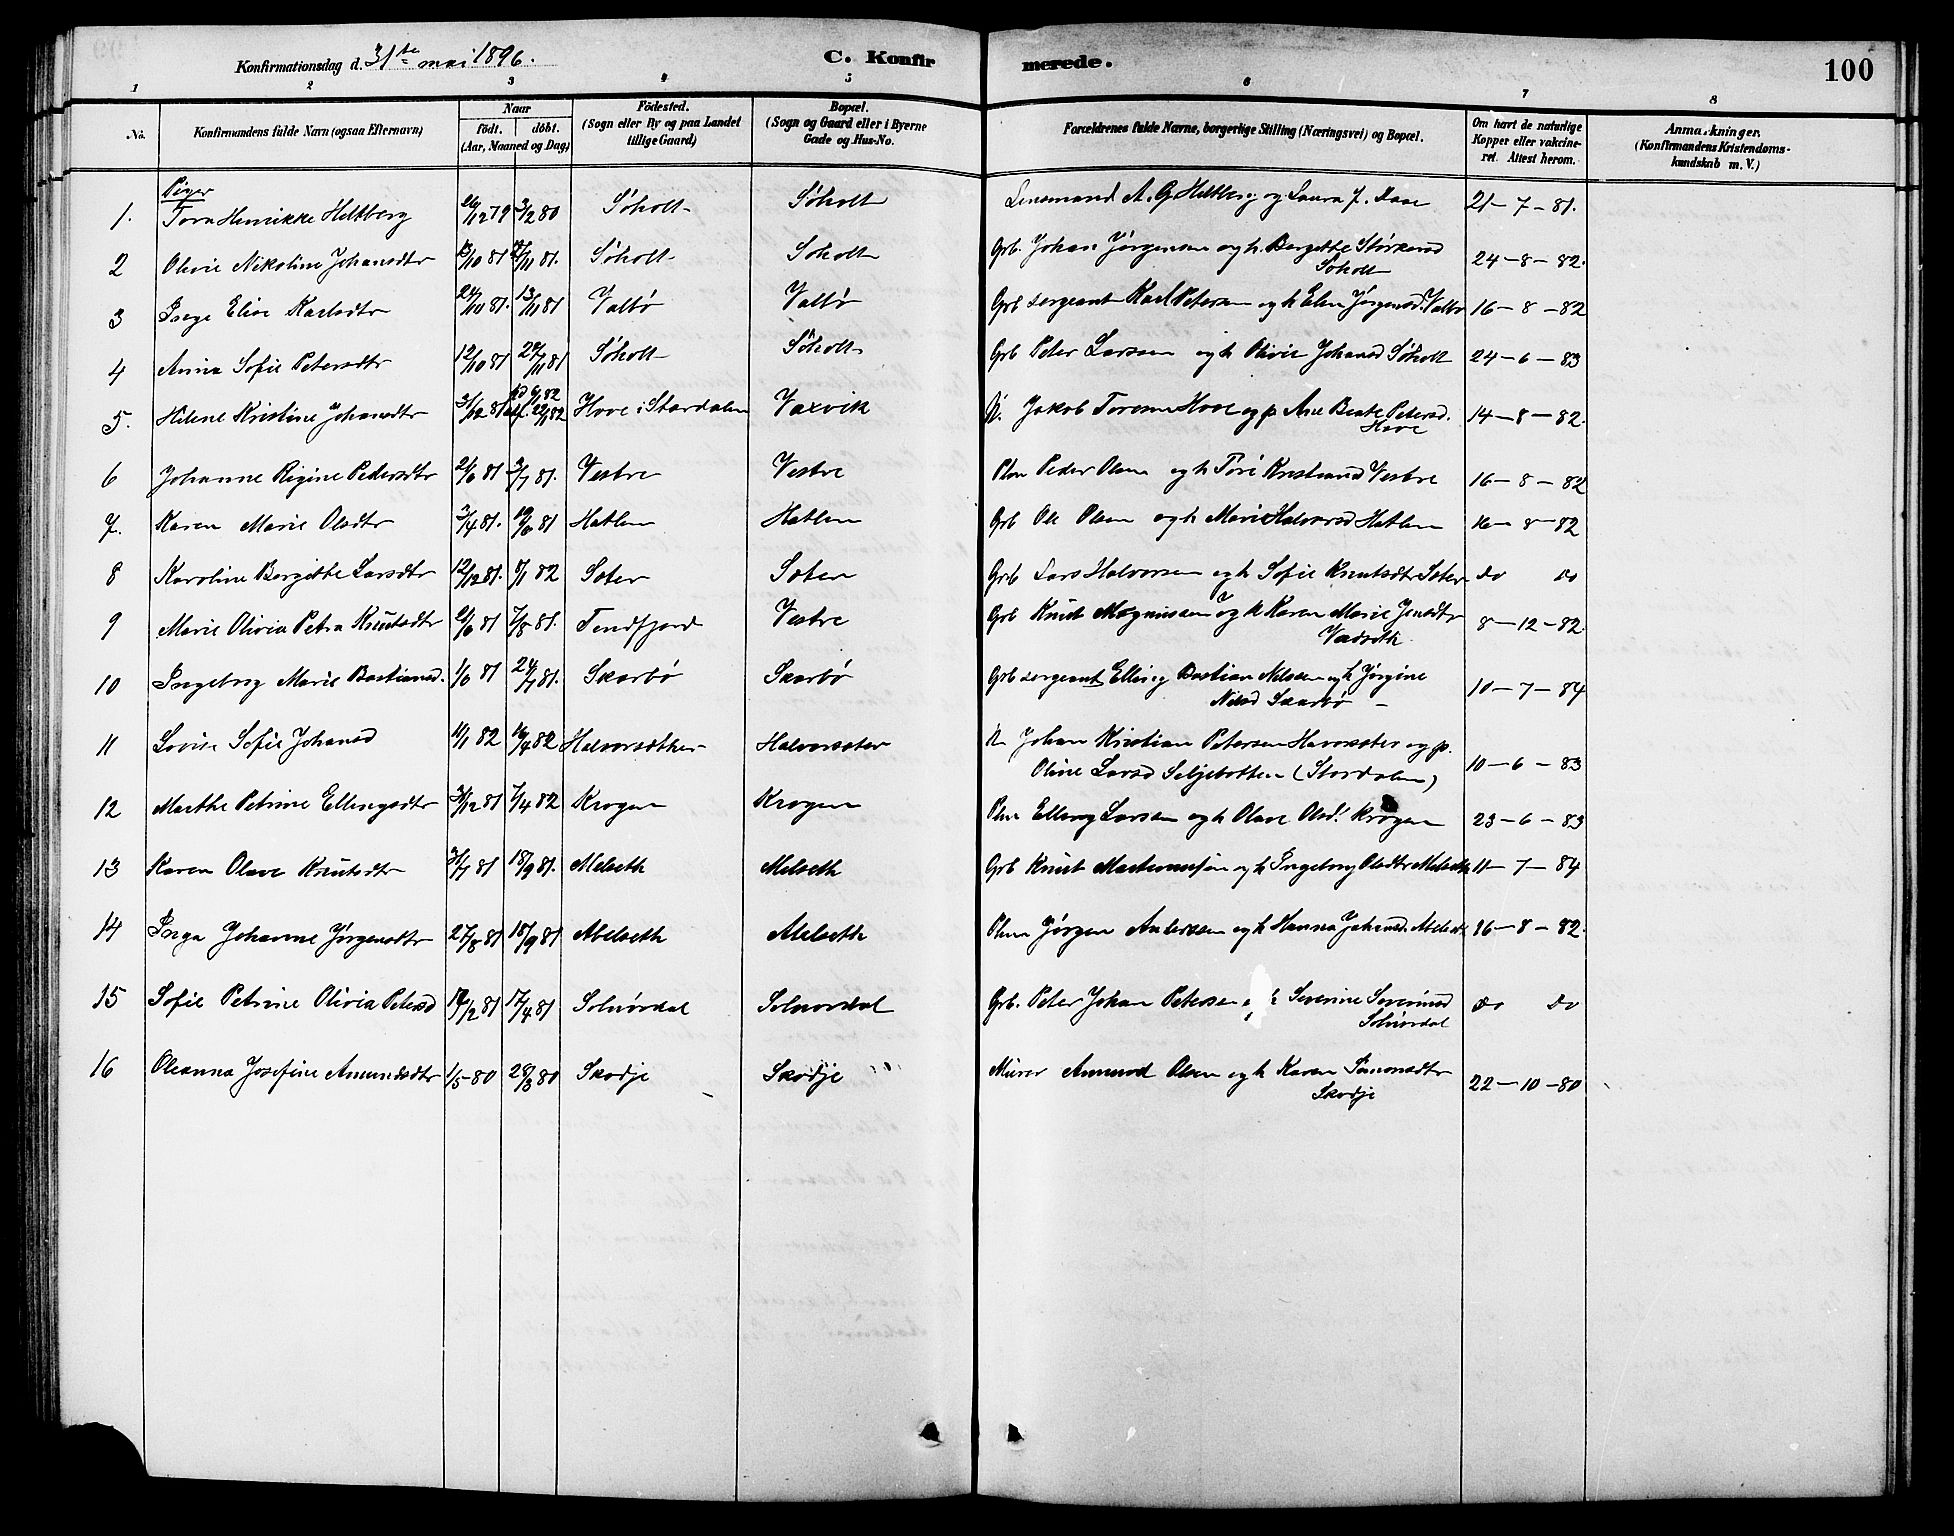 Konfirmationsdag d. 31te mai 1896. C. Konfirmerede. 100
1 2 3 4 5 6 7 8
No. Konfirmandens fulde Navn (ogsaa Efternavn) Naar født. døbt. (Aar, Maaned og Dag) Fødested. (Sogn eller By og paa Landet tillige Gaard) Bopæl. (Sogn og Gaard eller i Byerne Gade og Hus-No. Forældrenes fulde Navne, borgerlige Stilling (Næringsvei) og Bopæl. Om havt de naturlige Kopper eller vakcineret. Attest herom. Anmærkninger. (Konfirmandens Kristendomskundskab m. V.)
Piger
1. Tora Henrikke Heltberg 26/12 79 3/2 80 Søholt Søholt Lensmand A. G. Heltberg og Laura J. Daae 21-7-81.
2 Olivie Nikoline Johansdtr /10 81 /11 81. Søholt Søholt Grb. Johan Jørgensen og h. Bergitte Størkersd
Søholt 24-8-82.
3 Inge Elise Karlsdtr 24/10 81. 13/11 81 Valbø Valbø Grb sergeant Karl Petersen og h Elen Jørgensd. Valbø 16-8-82
4 Anna Sofie Petersdtr 12/10 81 29/11 81 Søholt Søholt Grb Peter Larssen og h Olivie Johansd Søholt 24-6-83
5. Helene Kristine Johansdtr 31/12 81 Hove i Stordalen Vaxvik Jakob Toresen Hove og p Ane Beate Petersd.
Hove 14-8-82.
6 Johanne Regine Pedersdtr 21/6 81 3/7 81. Vestre Vestre Plm Peder Olsen og h Tori Kristiansd Vestre 16-8-82
7. Karen Marie Olsdtr 3/4 81. 19/6 81 Hatlen Hatlen Grb Ole Olsen og h Marie Halvorsd Hatlen 16-8-82
8 Karoline Bergitte Larsdtr 12/12 81. 8/1 82 Sæter Sæter Grb Lars Halvorsen og h Sofie Knutsdtr Sæter do do
9 Marie Olivia Petra Knutsdtr 21/6 81 7/8 81. Tendfjord Vestre Grb Knut Magnussen og h Karen Marie Jensdtr
8-12-82.
10 Ingeborg Marie Bastiansd. 1/6 81 24/7 81. Skarbø Skarbø Grb sergeant Elling Bastian Nilssen og h Jørgine
Nilsd Skarbø 10-7-84
11 Lovise Sofie Johansd 11/1 82 16/4 82 Halvorsæter Johan Kristian Petersen og p.
Oline Larsd Seljebotten (Stordalen) 10-6-83
12 Marthe Petrine Ellingsdtr 31/12 81 7/4 82 Krogen Krogen Plm Elling Larsen og h Olave Olsd. Krogen 23-6-83
13 Karen Olave Knutsdtr 31/7 81 18/9 81. Melseth Melseth Grb Knut Martinussen og h Ingeborg Olsdtr Melseth 11-7-84
14 Inga Johanne Jørgensdtr 27/8 81 18/9 81 Melseth Melseth Plm Jørgen Anderssen og h Hanna Johansd. Melseth 16-8-82.
15 Sofie Petrine Olivia Petersd /2 81 17/4 81 Solnørdal Solnørdal Grb. Peter Johan Peterssen og h Severine Severinsd
Solnørdal do do
16 Oleanna Josefine Amundsdtr 1/5-80 28/3 80 Skodje Skodje Murer Amund Olsen og h Karen Simonsdtr
Skodje 22-10-80